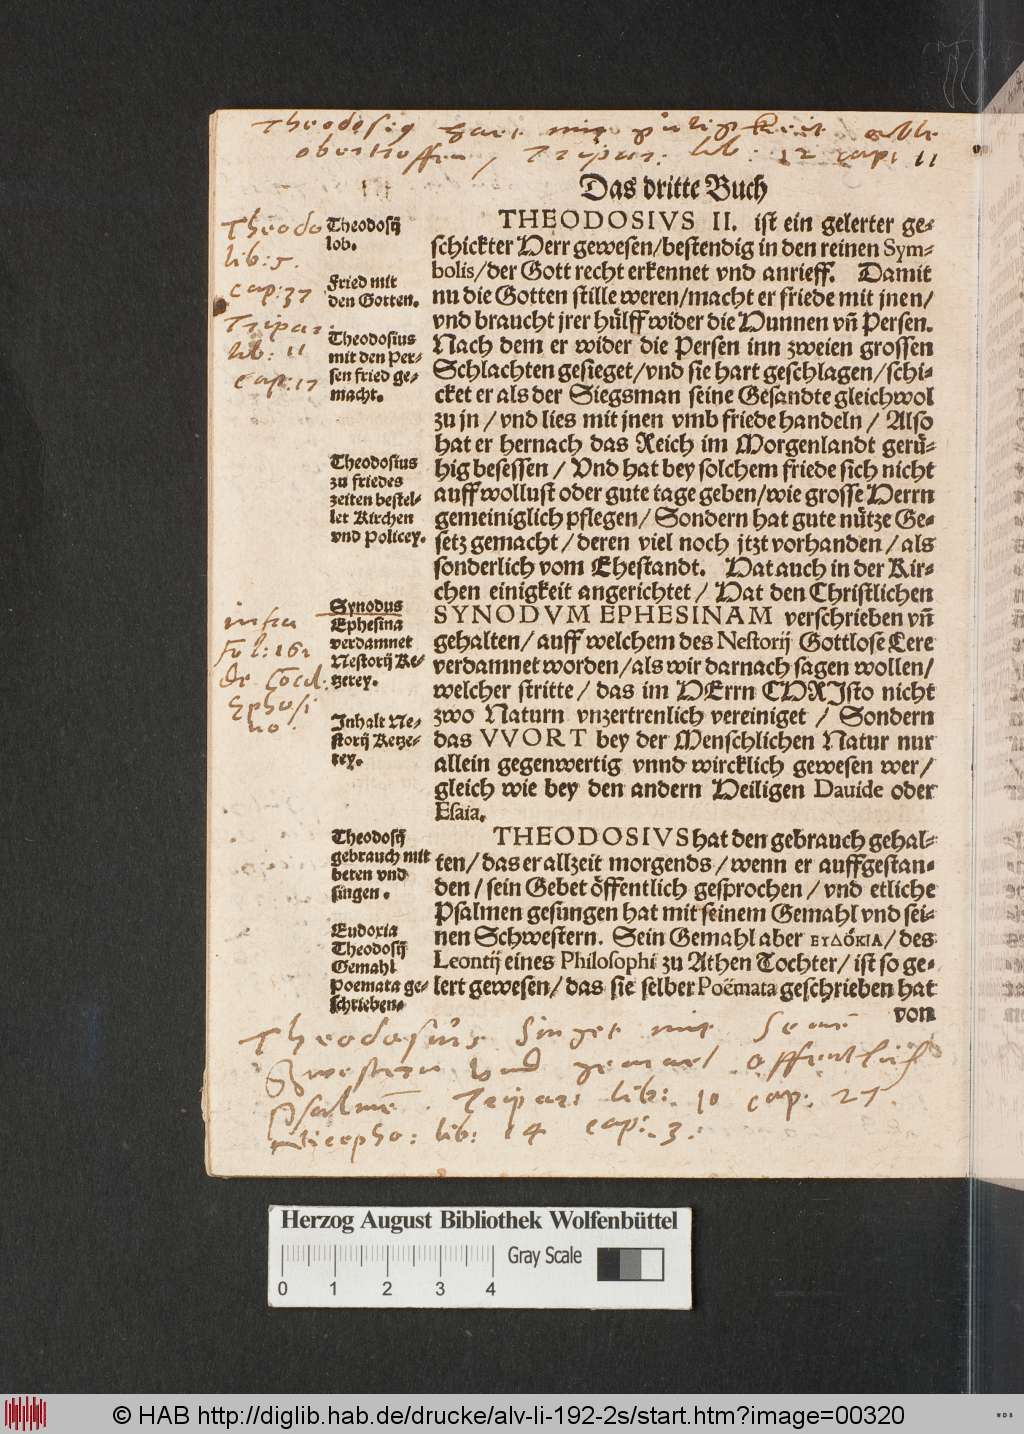 Theodosiꝰ hatt mit gutigkeit alle
obertroffen / Tripar: lib: 12 cap: 11
Das dritte Buch
Theodo
lib: 5.
cap: 37
Tripar:
lib: 11
cap: 17
Theodosij
lob.
Fried mit
den Gotten.
Theodosius
mit den Per⸗
sen fried ge⸗
macht.
Theodosius
zu friedes
zeiten bestel⸗
let Kirchen
vnd Policey.
infra
Fol: 161
de Cōcil:
Ephesi
no
Synodus
Ephesina
verdamnet
Nestorij Ke⸗
tzerey.
Inhalt Ne⸗
storij Ketze⸗
rey.
Theodosij
gebrauch mit
beten vnd
singen.
Eudoxia
Theodosij
Gemahl
Poemata ge⸗
schrieben.
THEODOSIVS II. ist ein gelerter ge⸗
schickter Herr gewesen/bestendig in den reinen Sym⸗
bolis/der Gott recht erkennet vnd anrieff. Damit
nu die Gotten stille weren/macht er friede mit jnen/
vnd braucht jrer hülff wider die Hunnen vñ Persen.
Nach dem er wider die Persen inn zweien grossen
Schlachten gesieget/vnd sie hart geschlagen/schi⸗
cket er als der Siegsman seine Gesandte gleichwol
zu jn/vnd lies mit jnen vmb friede handeln/Also
hat er hernach das Reich im Morgenlandt gerü⸗
hig besessen/Vnd hat bey solchem friede sich nicht
auff wollust oder gute tage geben/wie grosse Herrn
gemeiniglich pflegen/Sondern hat gute nütze Ge⸗
setz gemacht/deren viel noch jtzt vorhanden/als
sonderlich vom Ehestandt. Hat auch in der Kir⸗
chen einigkeit angerichtet/Hat den Christlichen
SYNODVM EPHESINAM verschrieben vñ
gehalten/auff welchem des Nestorij Gottlose Lere
verdamnet worden/als wir darnach sagen wollen/
welcher stritte/das im HErrn CHRIsto nicht
zwo Naturn vnzertrenlich vereiniget/Sondern
das VVORT bey der Menschlichen Natur nur
allein gegenwertig vnnd wircklich gewesen wer/
gleich wie bey den andern Heiligen Dauide oder
Esaia.
THEODOSIVS hat den gebrauch gehal⸗
ten/das er allzeit morgends/wenn er auffgestan⸗
den/sein Gebet öffentlich gesprochen/vnd etliche
Psalmen gesungen hat mit seinem Gemahl vnd sei⸗
nen Schwestern. Sein Gemahl aber ΕΥΔΌΚΙΑ/des
Leontij eines Philosophi zu Athen Tochter/ist so ge⸗
lert gewesen/das sie selber Poëmata geschrieben hat
von
Theodosius singet mit seinē
Swestern vnd gemael offentlich
Psalmē. Tripar: lib: 10 cap: 27.
Nicepho: lib: 14 cap: 3.
Herzog August Bibliothek Wolfenbüttel
Gray Scale
0 1 2 3 4
© HAB http://diglib.hab.de/drucke/alv-li-192-2s/start.htm?image=00320